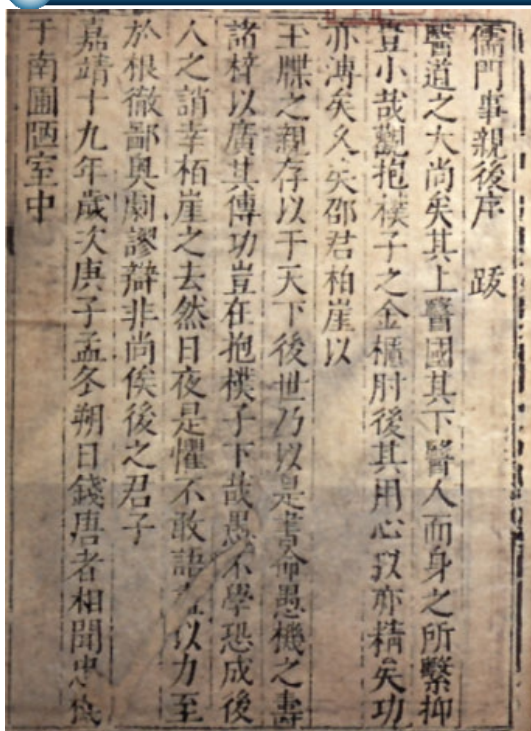 儒門事親後序　跋
醫道之大尚矣其上醫國其下醫人而身之所繫抑
豈小哉觀抱樸子之金櫃肘後其用心以亦精矣功
亦溥矣久矣邵君柏崖以
王牒之親存以干天下後世乃以是書命愚機之壽
諸梓以廣其傳功豈在抱樸子下哉愚不學恐成後
人之誚幸柏崖之去然日夜是懼不敢語以力至
於根徹鄙奧劇謬辯非尚俟後之君子
嘉靖十九年歲次庚子孟冬朔日錢唐者相聞忠
于南圃陋室中